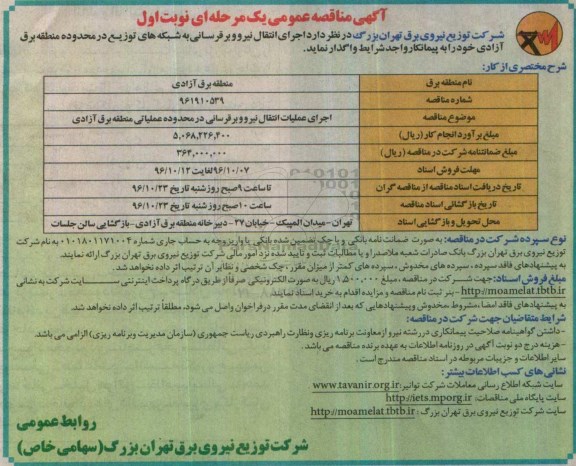 آگهی مناقصه عمومی یک مرحله ای نوبت اول
شرکت توزیع نیروی برق تهران بزرگ در نظر دارد اجرای انتقال نیرو و برقرسانی به شبکه های توزیع در محدوده منطقه برق
آزادی خود را به پیمانکار واجد شرایط واگذار نماید.
شرح مختصری از کار:
نام منطقه برق منطقه برق آزادی
شماره مناقصه ۹۶۱۹۱۰۵۳۹
موضوع مناقصه اجرای عملیات انتقال نیرو و برقرسانی در محدوده عملیاتی منطقه برق آزادی
مبلغ برآورد انجام کار (ریال) ۵,۰۶۸,۲۲۶,۴۰۰
مبلغ ضمانتنامه شرکت در مناقصه (ریال) ۳۶۴,۰۰۰,۰۰۰
مهلت فروش اسناد ۹۶/۱۰/۰۷ لغایت ۹۶/۱۰/۱۲
تاریخ دریافت اسناد مناقصه از مناقصه گران تا ساعت ۹ صبح روز شنبه تاریخ ۹۶/۱۰/۲۳
تاریخ بازگشائی اسناد مناقصه ساعت ۱۰ صبح روز شنبه تاریخ ۹۶/۱۰/۲۳
محل تحویل و بازگشایی اسناد تهران - میدان المپیک - خیابان ۲۷ - دبیرخانه منطقه برق آزادی - بازگشایی سالن جلسات
نوع سپرده شرکت در مناقصه: به صورت ضمانت نامه بانکی و یا چک تضمین شده بانکی یا واریز وجه به حساب جاری شماره ۰۱۰۱۸۰۱۱۷۱۰۰۴ به نام شرکت
توزیع نیروی برق تهران بزرگ بانک صادرات شعبه ملاصدرا و یا مطالبات ثبت و تایید شده نزد امور مالی شرکت توزیع نیروی برق تهران بزرگ ارائه نمایند.
به پیشنهادهای فاقد سپرده، سپرده های مخدوش، سپرده های کمتر از میزان مقرر، چک شخصی و نظایر آن ترتیب اثر داده نخواهد شد.
مبلغ فروش اسناد: جهت شرکت در مناقصه، مبلغ ۱,۵۰۰,۰۰۰ ریال به صورت الکترونیکی صرفاً از طریق درگاه پرداخت اینترنتی سایت شرکت به نشانی
http://moamelat.tbtb.ir- پنر ثبت نام مناقصه و مزایده اقدام به خرید اسناد نمایند.
به پیشنهادهای فاقد امضا، مشروط، مخدوش وپیشنهادهایی که بعد از انقضای مدت مقرر در فراخوان واصل می شود، مطلقاً ترتیب اثر داده نخواهد شد.
شرایط متقاضیان جهت شرکت در مناقصه:
-داشتن گواهینامه صلاحیت پیمانکاری در رشته نیرو از معاونت برنامه ریزی ونظارت راهبردی ریاست جمهوری (سازمان مدیریت وبرنامه ریزی) الزامی می باشد.
-هزینه درج دو نوبت آگهی در روزنامه اطلاعات به عهده برنده مناقصه می باشد.
سایر اطلاعات و جزییات مربوطه در اسناد مناقصه مندرج است.
نشانی های کسب اطلاعات بیشتر:
سایت شبکه اطلاع رسانی معاملات شرکت توانیر: www.tavanir.org.ir
سایت پایگاه ملی مناقصات: http://iets.mporg.ir
سایت شرکت توزیع نیروی برق تهران بزرگ: http://moamelat.tbtb.ir
روابط عمومی
شرکت توزیع نیروی برق تهران بزرگ (سهامی خاص)